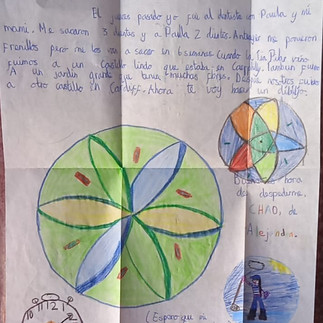 El jueves pasado yo fui al dentista con Paula y mi
mami. Me sacaron 3 dientes y a Paula 2 dientes. Andrew me pusieron
frenillos pero me los van a sacar en 6 semanas cuando la Tia Pilar vino
fuimos a un Castillo lindo que estaba en Caerphilly. Tambien fuimos
A un jardin grande que tenia muchas flores. Despues nosotros fuimos
a otro castillo en Cardiff. Ahora te voy hacer un dibujo.
hora
de despedirme.
CHAO, de
Alejandra.
10 11 12 1
9 2
(Espero que mi